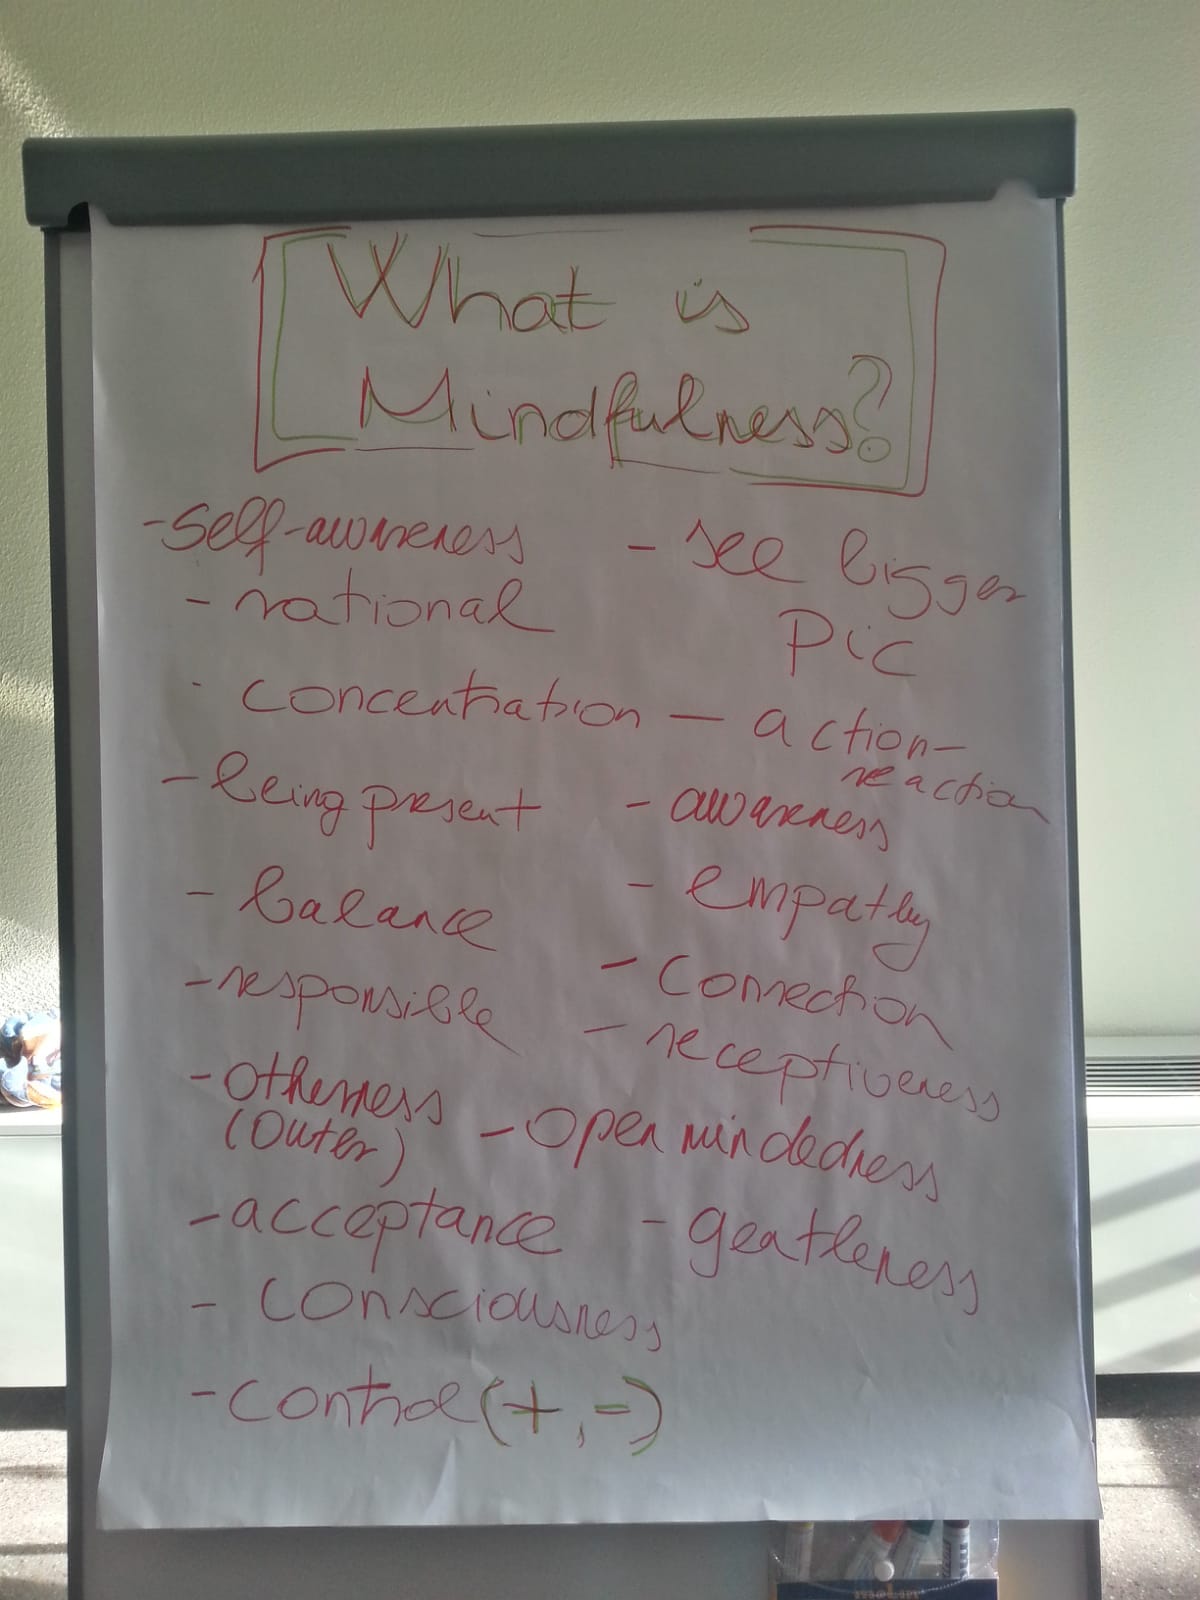 What is
Mindfulness?
-self-awareness
- rational
- concentration
- being present
- balance
- responsible
- otherness
(outer)
- acceptance
- consciousness
- control (+, -)
- see bigger
Pic
- action-
reaction
- awareness
- empathy
- connection
- receptiveness
- open mindedness
- gentleness